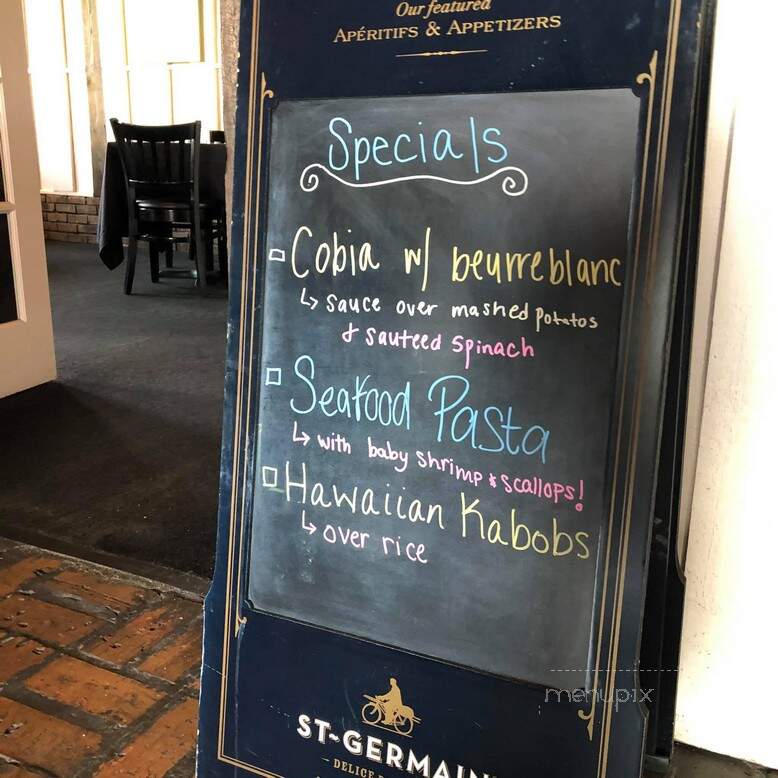 Our featured
APÉRITIFS & APPETIZERS
Specials
Cobia w/ beurreblanc
↳ sauce over mashed potatos
& sauteed spinach
Seafood Pasta
↳ with baby shrimp & scallops!
Hawaiian Kabobs
↳ over rice
menupix
ST-GERMAIN
DELICE